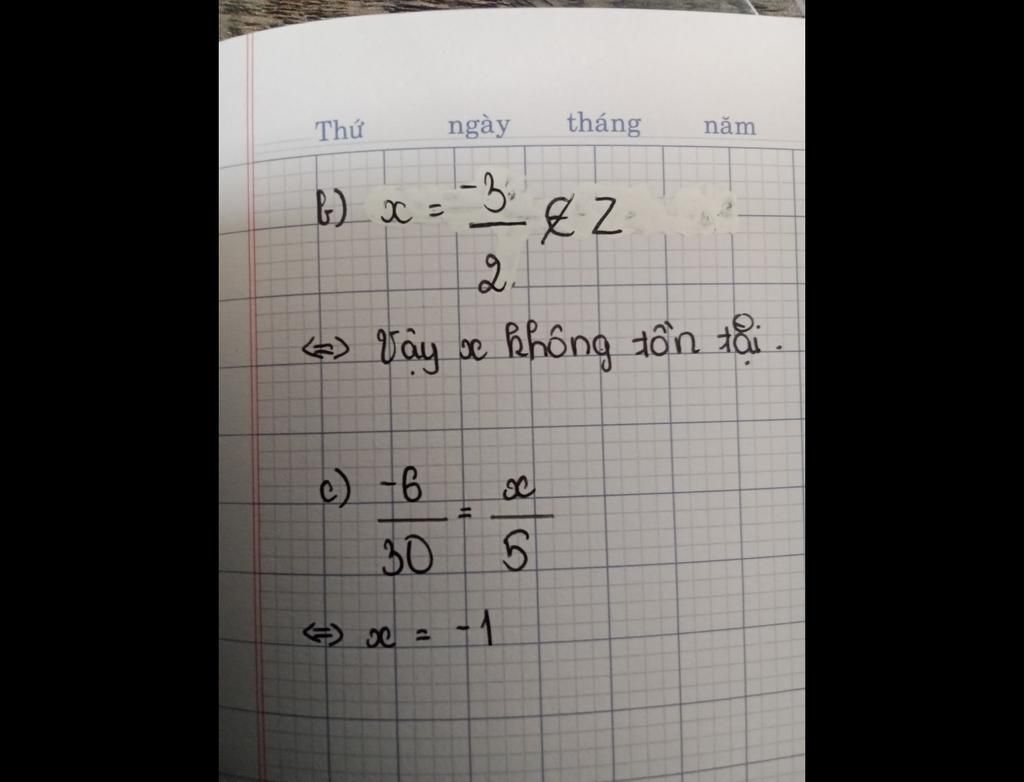 Thứ ngày tháng năm
b) x = -3/2 ∉ Z
<=> Vậy x không tồn tại.
c) -6/30 = x/5
<=> x = -1